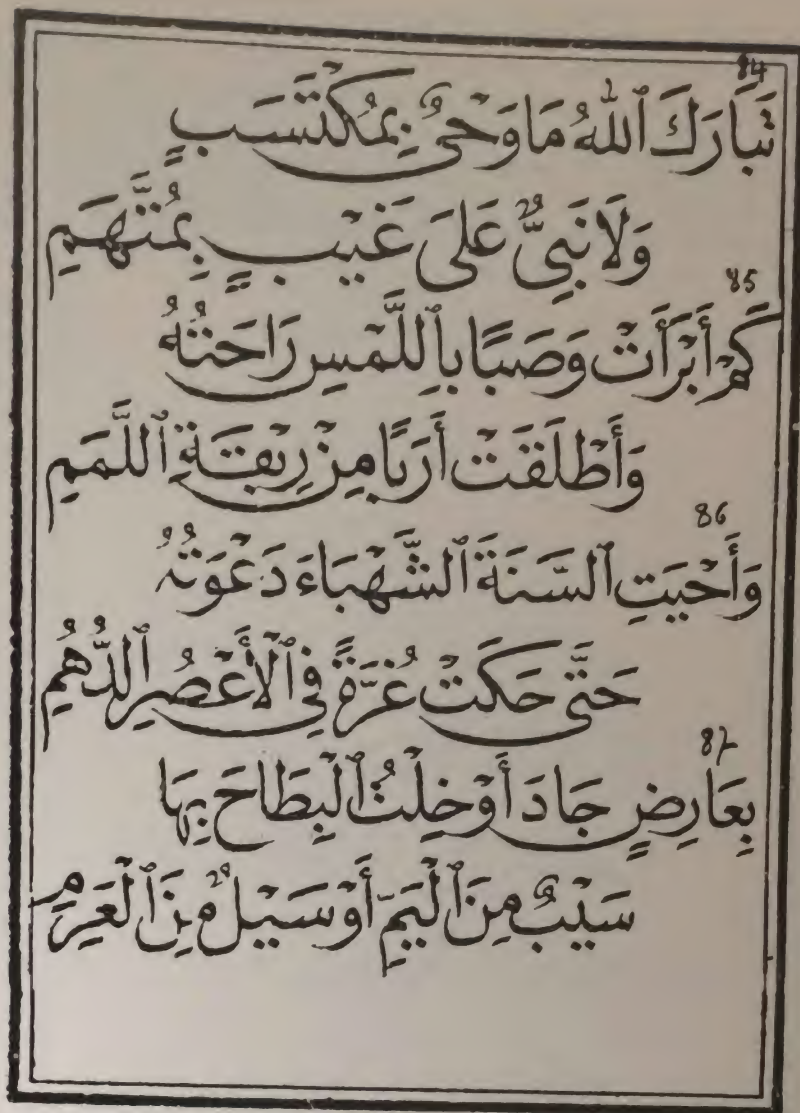 84
تَبَارَكَ ٱللّٰهُ مَا وَحْىٌ بِمُكْتَسَبٍ
وَلَا نَبِىٌّ عَلَى غَيْبٍ بِمُتَّهَمِ
85
كَمْ أَبْرَأَتْ وَصَبًا بِاٱللَّمْسِ رَاحَتُهُ
وَأَطْلَقَتْ أَرَبًا مِنْ رِبْقَةِ ٱللَّمَمِ
86
وَأَحْيَتِ ٱلسَّنَةَ ٱلشَّهْبَاءَ دَعْوَتُهُ
حَتَّى حَكَتْ غُرَّةً فِى ٱلْأَعْصُرِ ٱلدُّهُمِ
87
بِعَارِضٍ جَادَ أَوْ خِلْتُ ٱلْبِطَاحَ بِهَا
سَيْبٌ مِنَ ٱلْيَمِّ أَوْ سَيْلٌ مِنَ ٱلْعَرِمِ